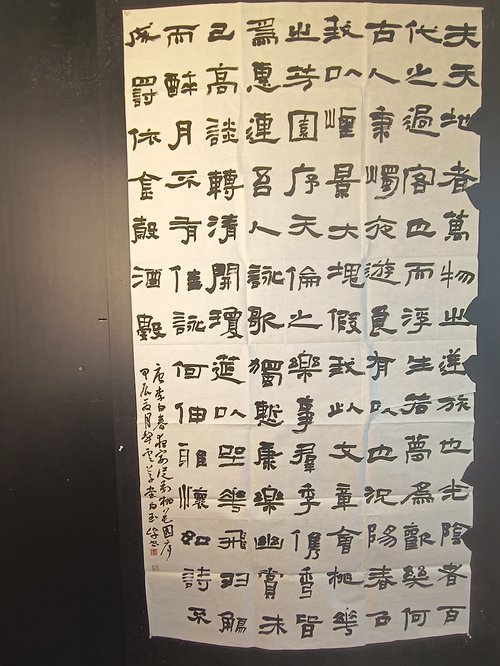 夫天地者萬物之逆旅也光陰者百
代之過客也而浮生若夢為歡幾何
古人秉燭夜遊良有以也況陽春召
我以煙景大塊假我以文章會桃花
之芳園序天倫之樂事群季儁秀皆
為惠連吾人詠歌獨慙康樂幽賞未
已高談轉清開瓊筵以坐花飛羽觴
而醉月不有佳詠何伸雅懷如詩不
成罰依金穀酒數
唐李白春夜宴從弟桃花園序
甲辰夏月